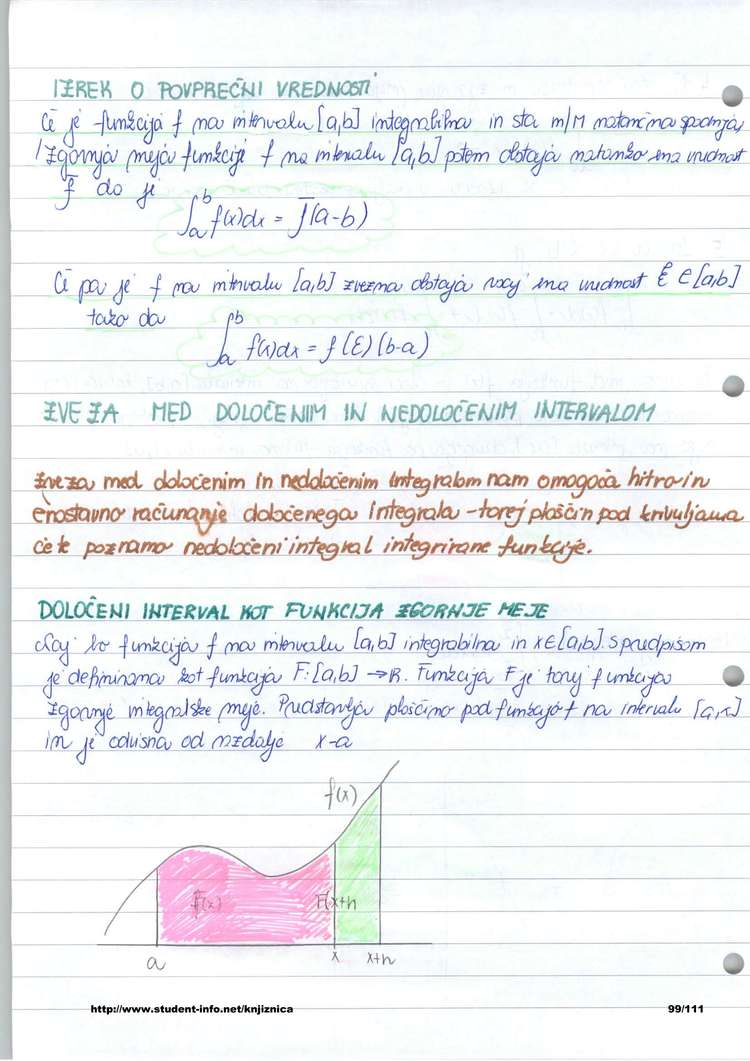 IZREK O POVPREČNI VREDNOSTI
Če je funkcija f na intervalu [a,b] integrabilna in sta m/M natančna spodnja
/zgornja meja funkcije f na intervalu [a,b] potem obstaja natanko ena vrednost
f̅ da je
∫ₐᵇ f(x)dx = f̅(a-b)
Če pa je f na intervalu [a,b] zvezna obstaja vsaj ena vrednost ξ ∈ [a,b]
tako da
∫ₐᵇ f(x)dx = f(ξ)(b-a)
ZVEZA MED DOLOČENIM IN NEDOLOČENIM INTERVALOM
Zveza med določenim in nedoločenim integralom nam omogoča hitro in
enostavno računanje določenega integrala - torej ploščin pod krivuljama
če le poznamo nedoločeni integral integrirane funkcije.
DOLOČENI INTERVAL KOT FUNKCIJA ZGORNJE MEJE
Naj bo funkcija f na intervalu [a,b] integrabilna in x∈[a,b]. S predpisom
je definirana kot funkcija F:[a,b] → R. Funkcija F je torej funkcija
zgornje integralske meje. Predstavlja ploščino pod funkcijo f na intervalu [a,x]
in je odvisna od razdalje x-a
f(x)
F(x)
F(x+h
a
x
x+h
http://www.student-info.net/knjiznica
99/111